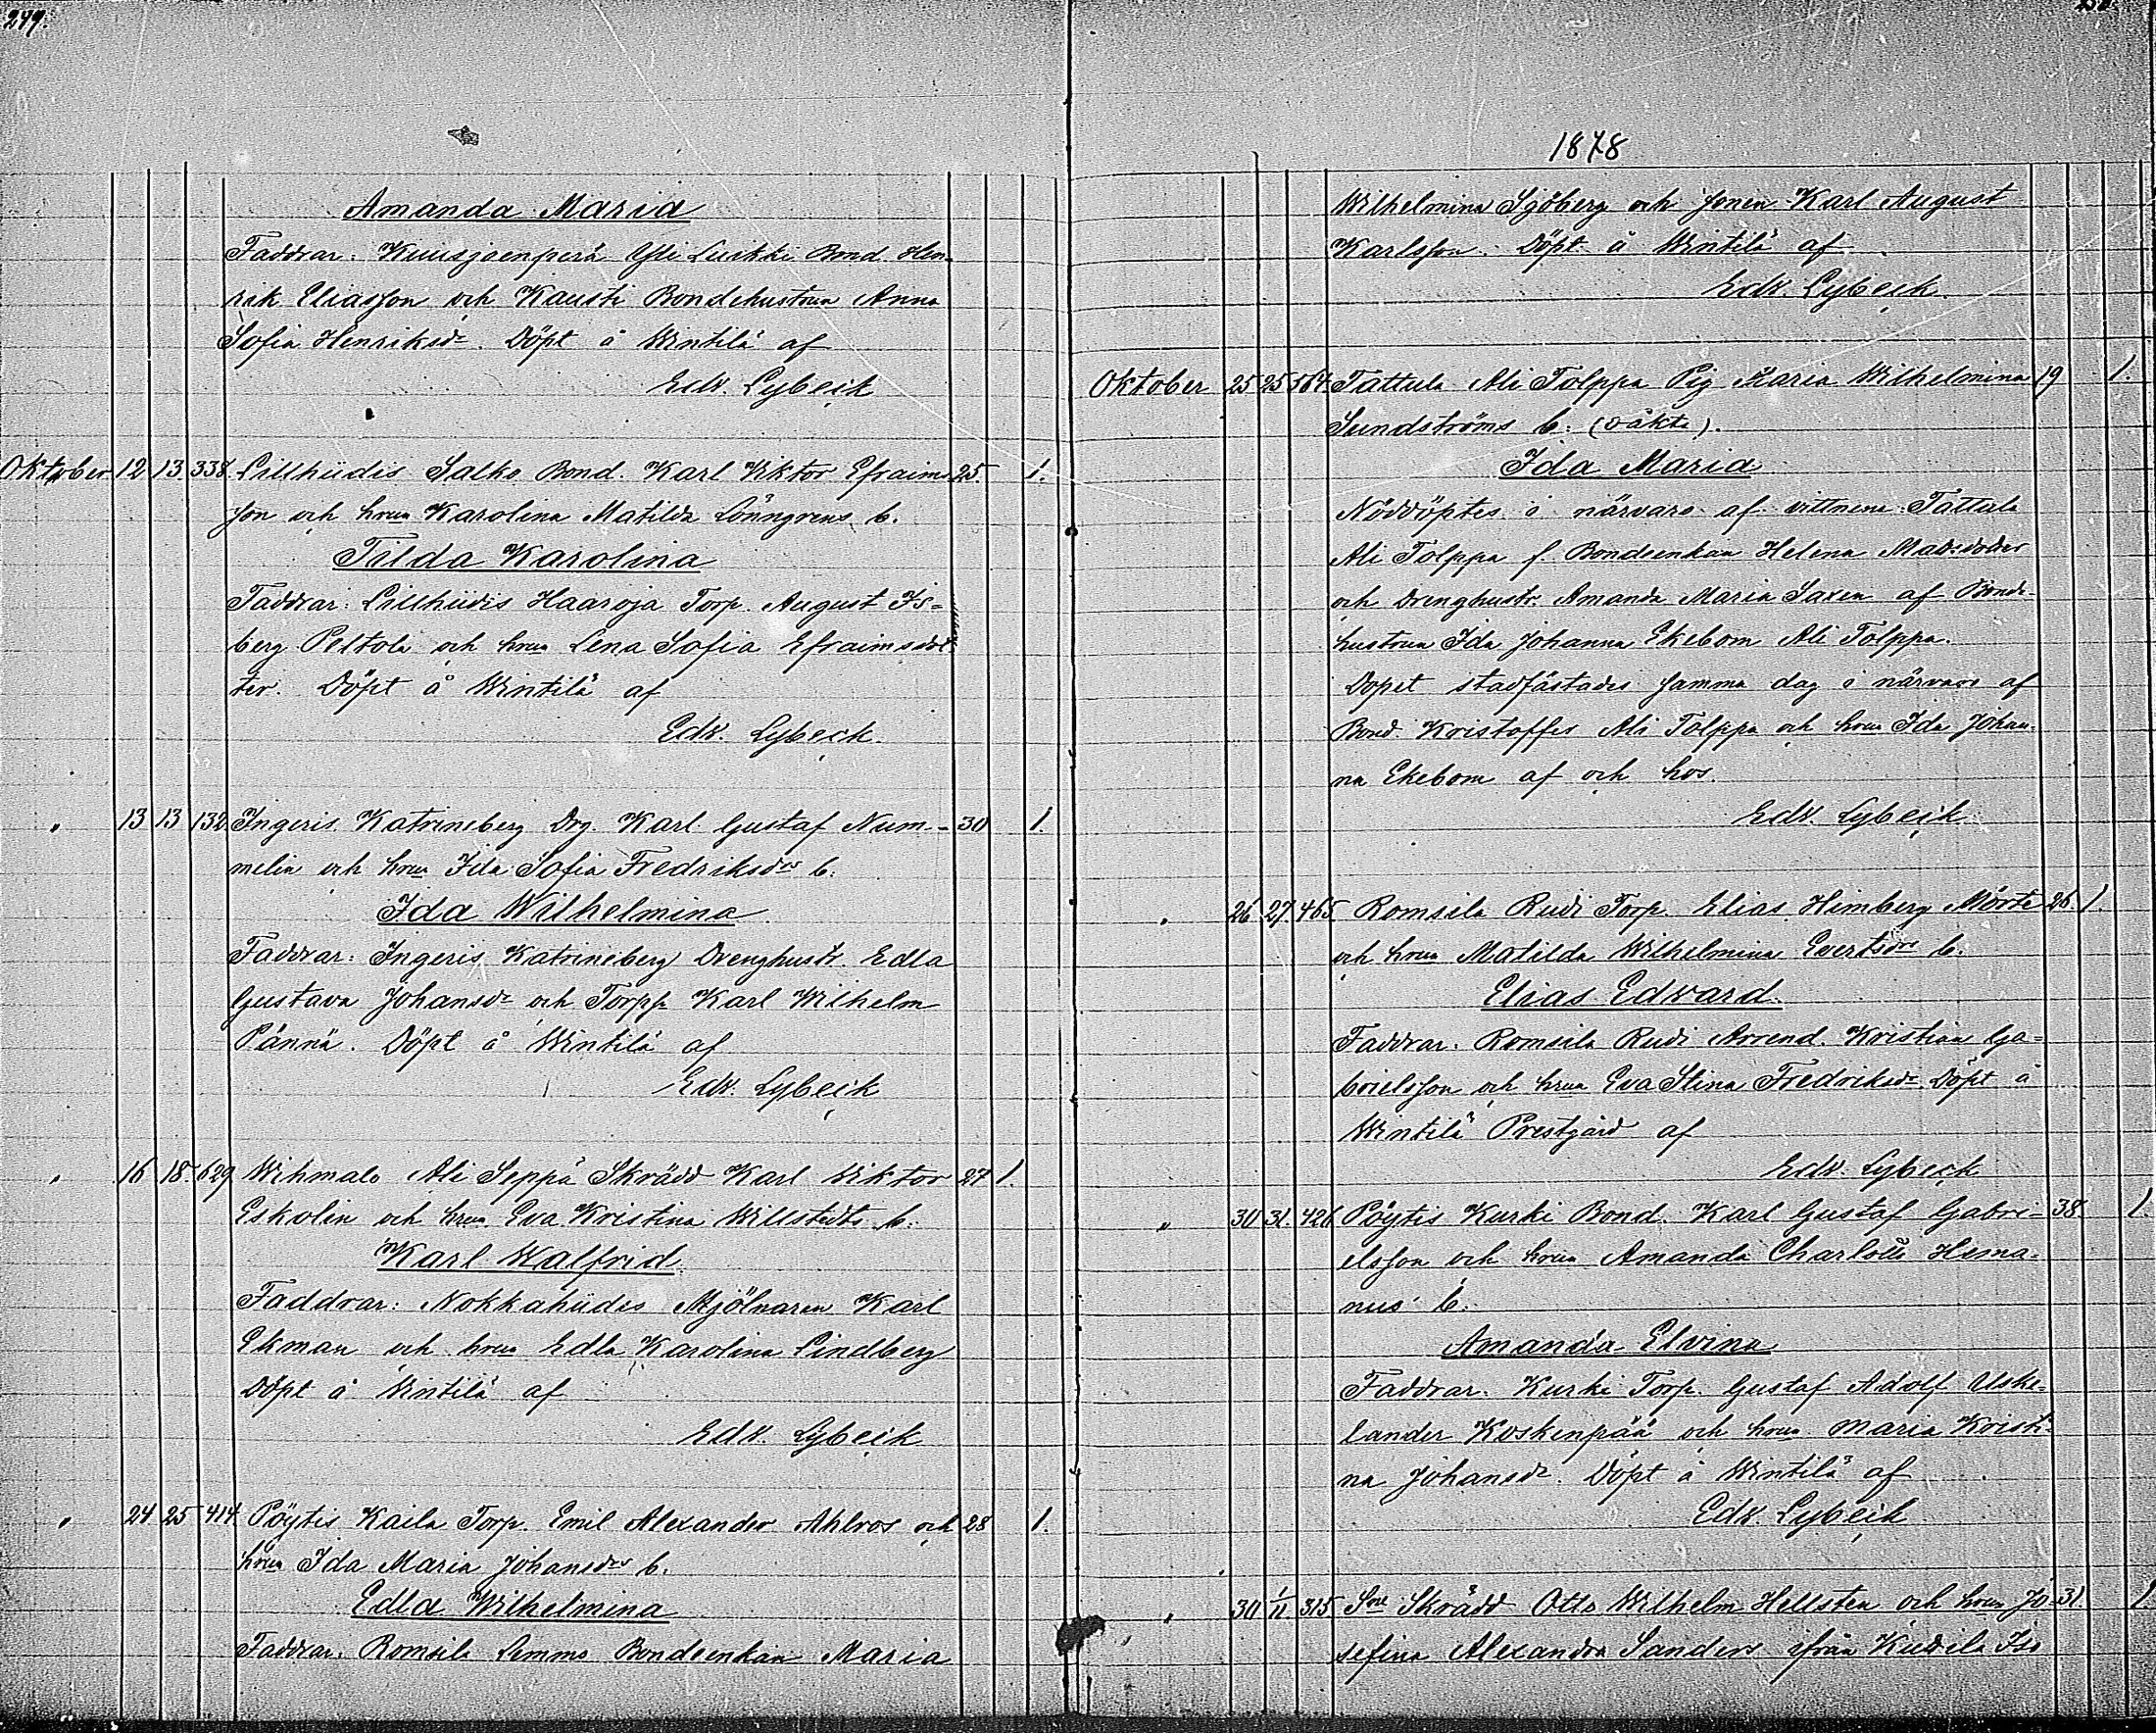 249.
Amanda Maria
Faddrar: Kuusjoenperä Yli Luikki Bond. Hen-
rik Eliasson och Kausti Bondehustrun Anna
Sofia Henriksdr. Döpt å Wintilä af
Edv. Lybeck
Oktober 12 13 338. Lillhiidis Salko Bond. Karl Viktor Efraims- 25. 1.
son och hrun Karolina Matilda Lönngrens b.
Tilda Karolina
Faddrar: Lillhiidis Haaroja Torp. August Is-
berg Peltola och hrun Lena Sofia Efraimsdot-
ter. Döpt å Wintilä af
Edv. Lybeck.
" 13 13 132 Ingeris Katrineberg Drg. Karl Gustaf Num- 30 1.
melin och hrun Ida Sofia Fredriksdrs b.
Ida Wilhelmina
Faddrar: Ingeris Katrineberg Drenghustr. Edla
Gustava Johansdr och Torpp Karl Wilhelm
Pännä. Döpt å Wintilä af
Edv. Lybeck
" 16 18. 629 Wihmalo Ali Seppä Skrädd Karl Viktor 27 1.
Eskolin och hrun Eva Kristina Willstedts b.
Karl Walfrid
Faddrar: Nokkahiidis Mjölnaren Karl
Ekman och hrun Edla Karolina Lindberg
Döpt å Vintilä af
Edv. Lybeck
" 24 25 414 Pöytis Kaila Torp. Emil Alexander Ahlros och 28 1.
hrun Ida Maria Johansdrs b.
Edla Wilhelmina
Faddrar: Romsila Simmo Bondeenkan Maria
1878
Wilhelmina Sjöberg och sonen Karl August
Karlsson. Döpt å Wintilä af
Edv. Lybeck.
Oktober 25 25 564 Tattula Ali Tolppa Pig Maria Wilhelmina 19 1.
Sundströms b. (oäkta).
Ida Maria
Nöddöptes i närvaro af vittnena Tattula
Ali Tolppa f. Bondeenkan Helena Matsdotter
och Drenghustr. Amanda Maria Saxen af Bonde-
hustrun Ida Johanna Ekebom Ali Tolppa.
Dopet stadfästades samma dag i närvaro af
Bond. Kristoffer Ali Tolppa och hrun Ida Johan-
na Ekebom af och hos.
Edv. Lybeck
" 26 27 465 Romsila Rudi Torp. Elias Himberg Mörte 26. 1.
och hrun Matilda Wilhelmina Evertsdrs b.
Elias Edvard.
Faddrar. Romsila Rudi Arrend. Kristian Ga-
brielsson och hrun Eva Stina Fredriksdr Döpt å
Wintilä Prestgård af
Edv. Lybeck
" 30 31. 426 Pöytis Kurki Bond. Karl Gustaf Gabri- 38. 1.
elsson och hrun Amanda Charlotte Hema-
nus' b.
Amanda Elvina
Faddrar. Kurki Torp. Gustaf Adolf Uske-
lander Koskenpää och hrun Maria Kristi-
na Johansdr. Döpt å Wintilä af
Edv. Lybeck
" 30 1/11 315 Sne Skrädd Otto Wilhelm Hellsten och hrun Jo- 31. 1.
sefina Alexandra Sanders ifrån Kudila Iso